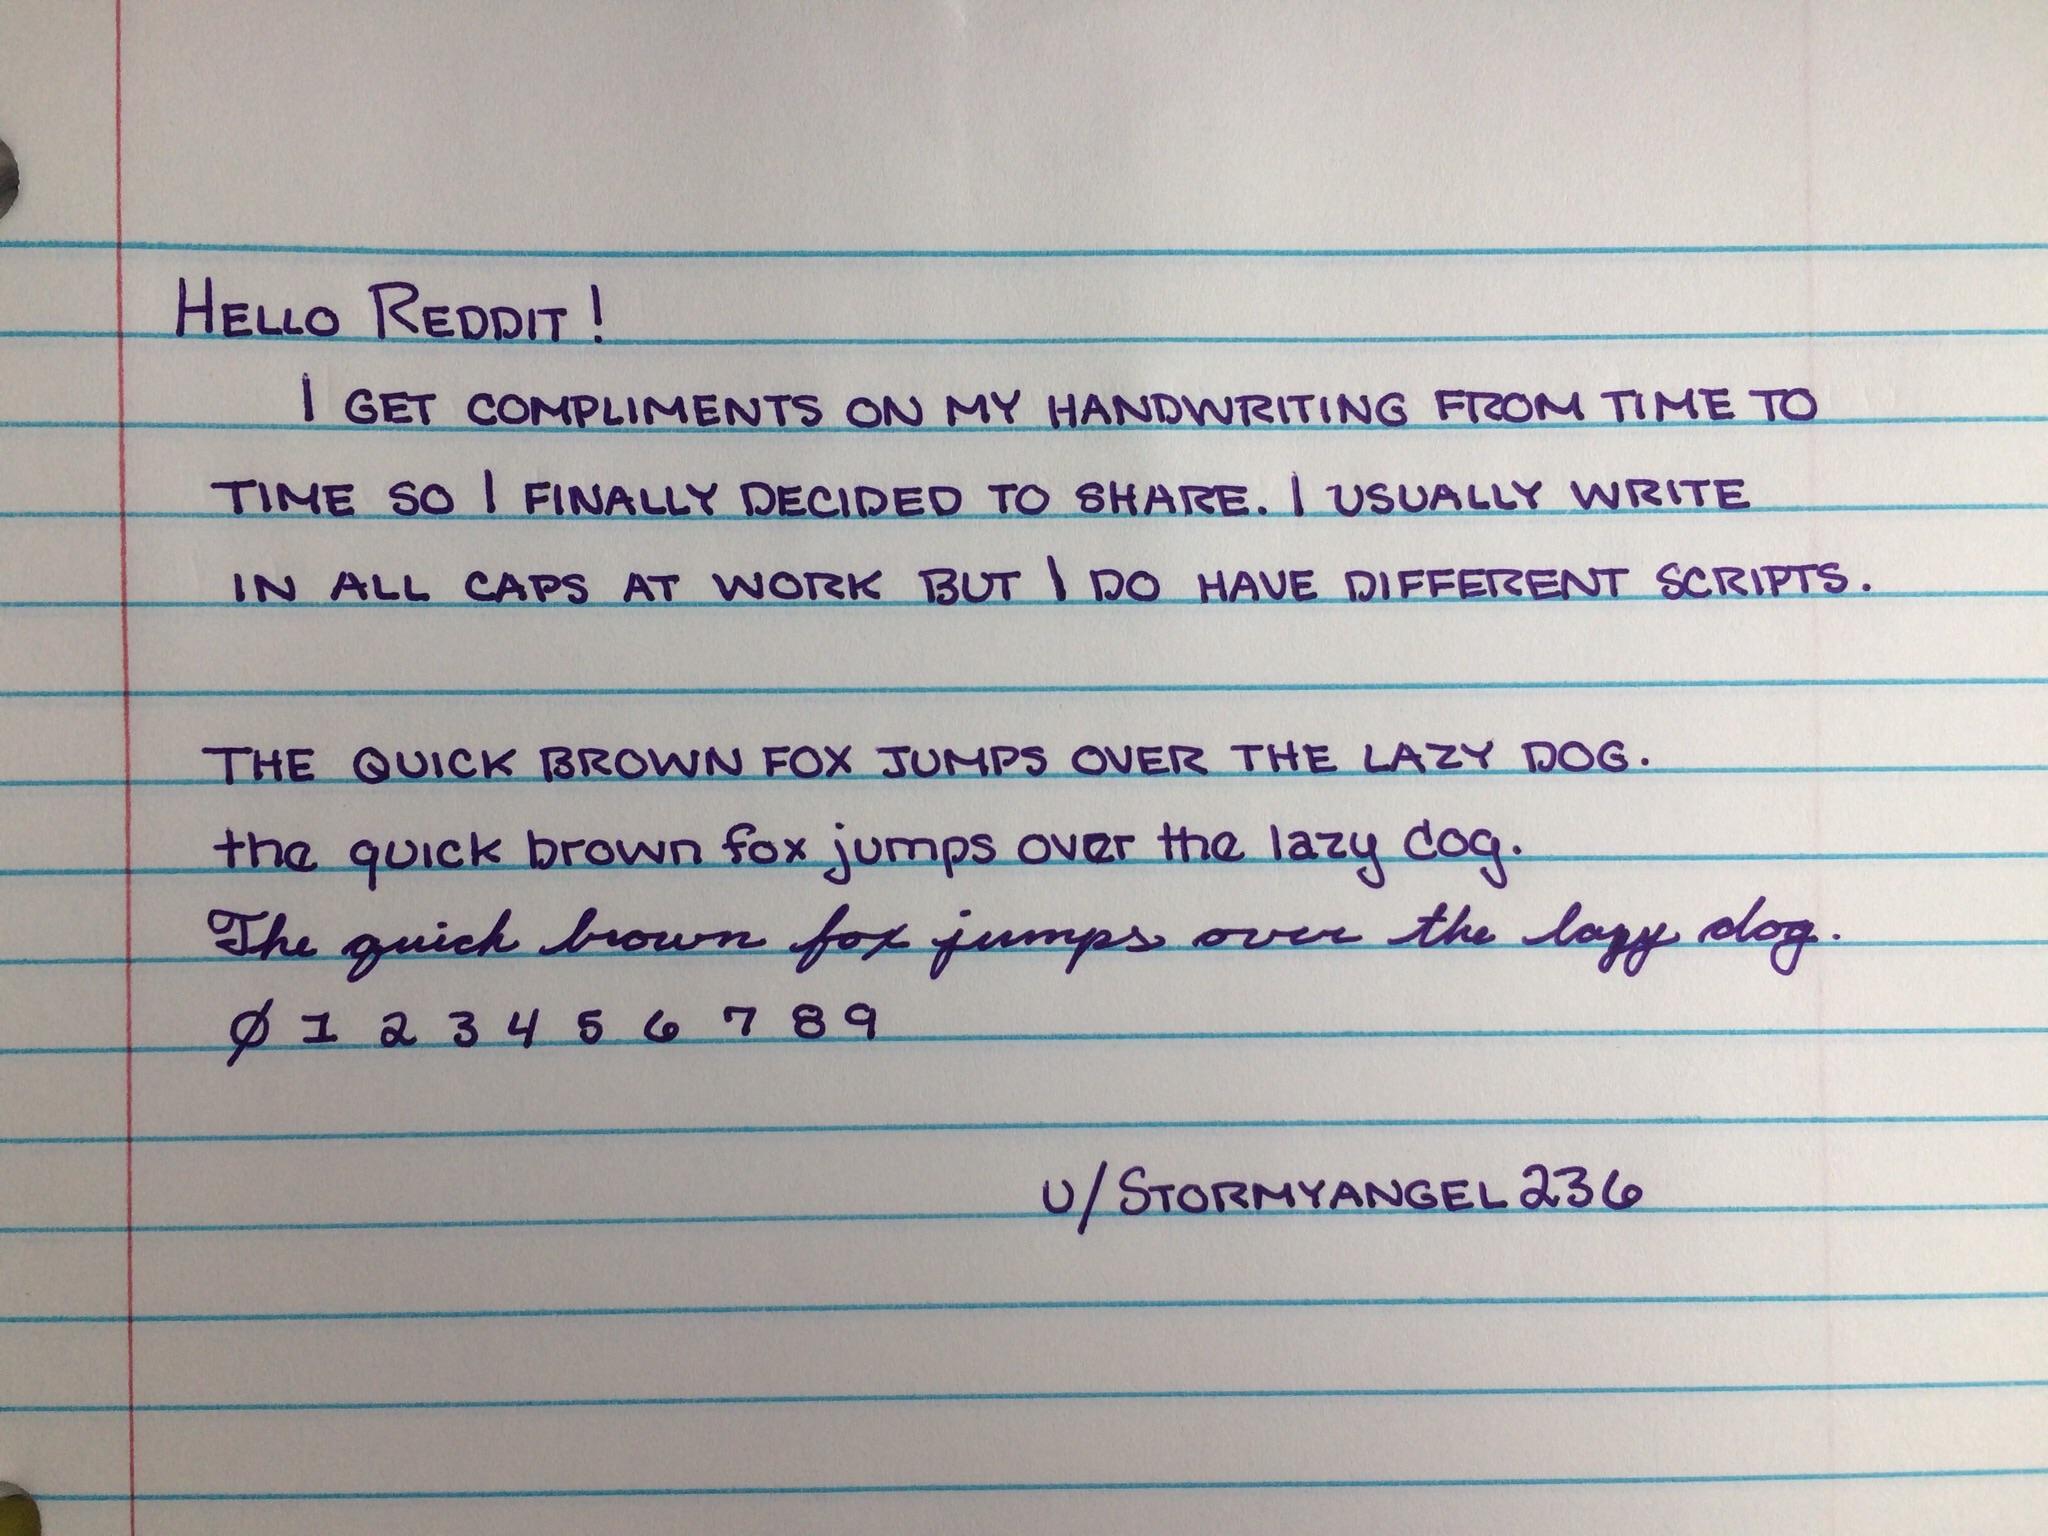 HELLO REDDIT!
I GET COMPLIMENTS ON MY HANDWRITING FROM TIME TO
TIME SO I FINALLY DECIDED TO SHARE. I USUALLY WRITE
IN ALL CAPS AT WORK BUT I DO HAVE DIFFERENT SCRIPTS.
THE QUICK BROWN FOX JUMPS OVER THE LAZY DOG.
the quick brown fox jumps over the lazy dog.
The quick brown fox jumps over the lazy dog.
Ø 1 2 3 4 5 6 7 8 9
U/STORMYANGEL236